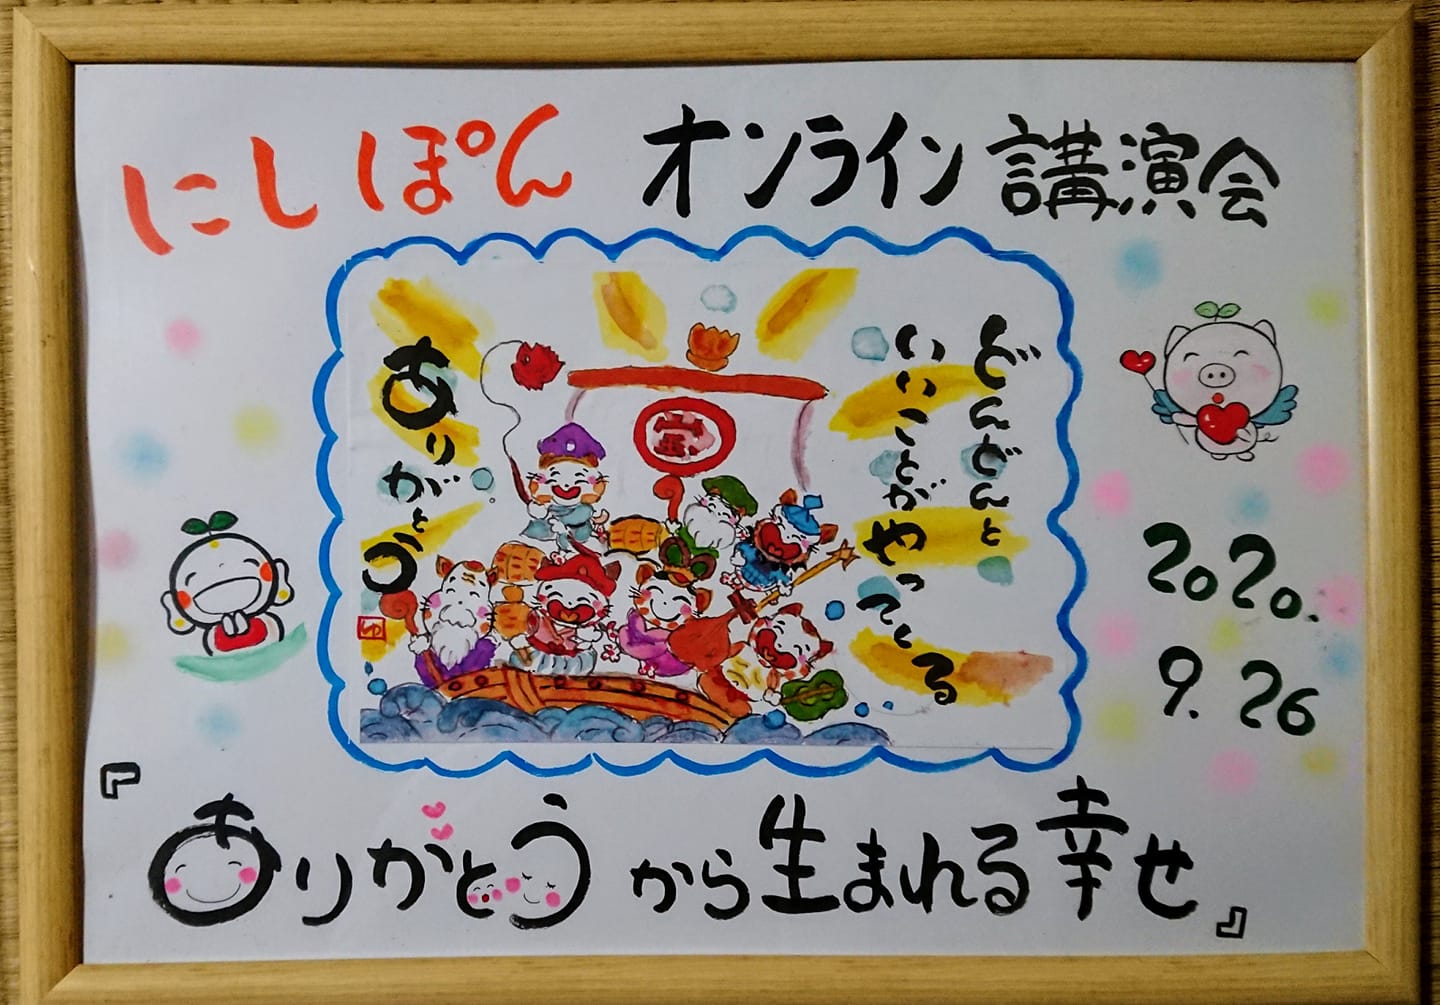 にしぽん オンライン講演会
どんどんと
いいことがやってくる
ありがとう
2020.
9.26
『ありがとうから生まれる幸せ』